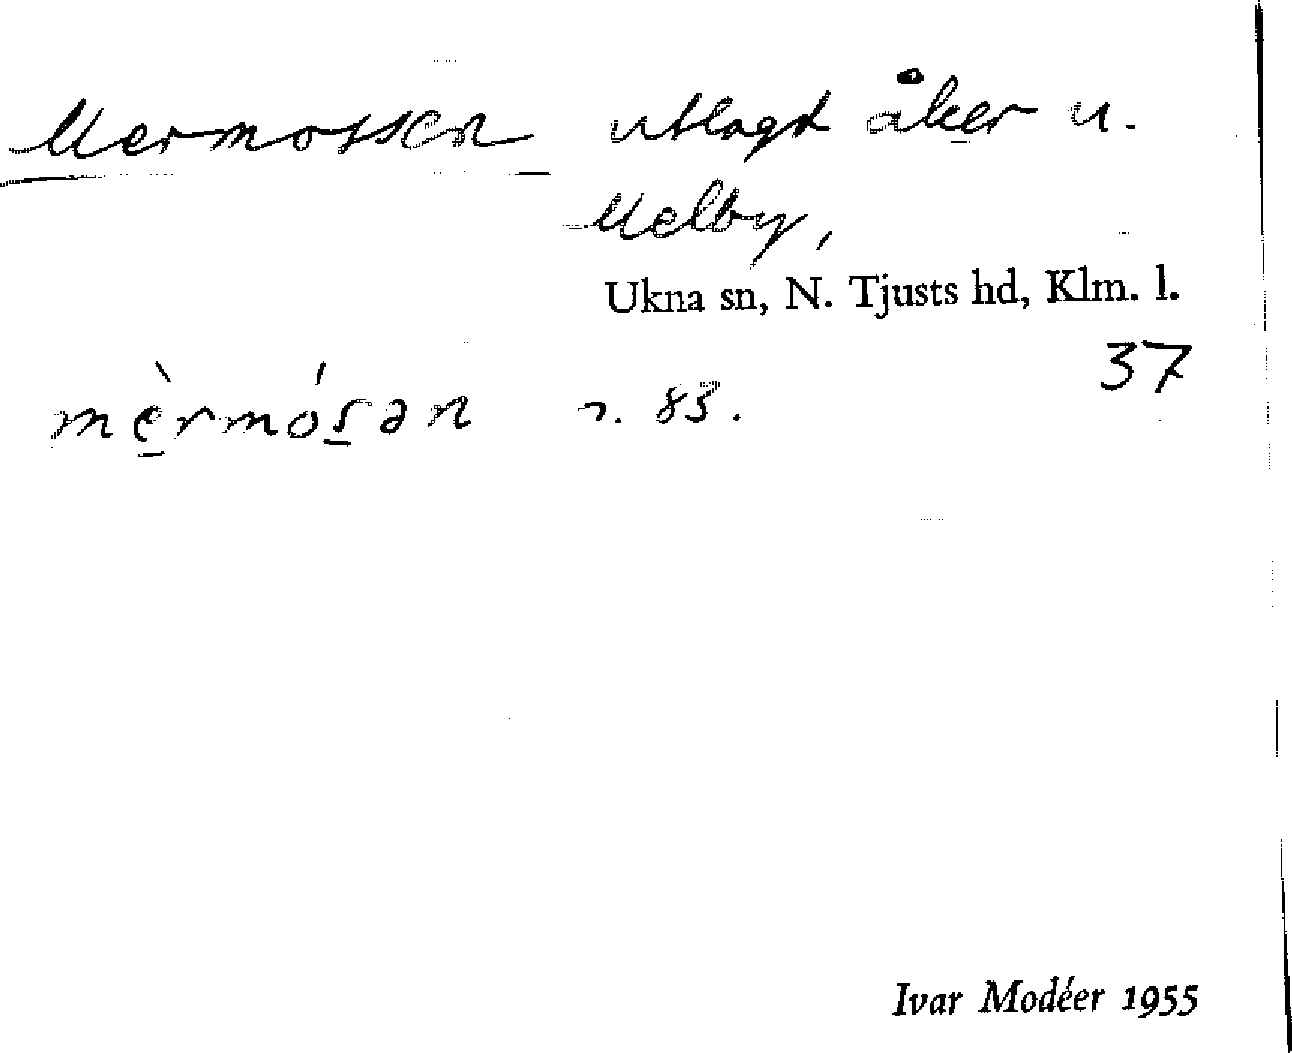 Mermossen utlagd åker u.
Melby,
Ukna sn, N. Tjusts hd, Klm. l.
37
mèrmósən n. 83.
Ivar Modéer 1955